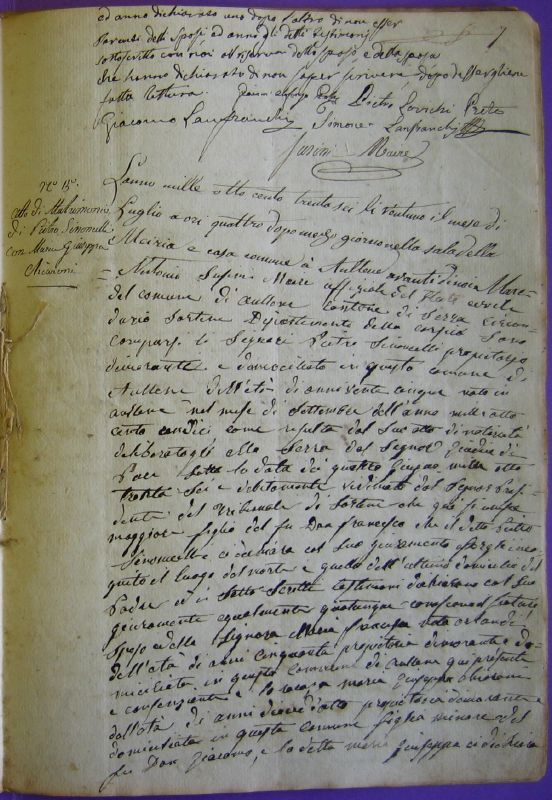 ed anno dichiarato uno dopo l'altro di non esser
Parenti delli Sposi ed anno li detti testimonj
sottoscritto con noi a riserva dello sposo e della sposa
che hanno dichiarato di non saper scrivere dopo dessergliene
fatta lettura.
Pietro Lovichi Prete
Giacomo Lanfranchi Simone Lanfranchi
Susini Maire
No 15.
atto di Matrimonio
di Pietro Simonelli
con Maria Giuseppa
Chiaroni
Lanno mille otto cento trenta sei li ventuno il mese di
Luglio a ore quattro dopo mezzo giorno nella sala della
Meiria e casa comune à Aullene avanti di noi Marc-
Antonio Susini Maire uffiziale del stato civile
del comune di aullene cantone di Serra circon-
dario Sartene Dipartimento della corsica Sono
comparsi il Signore Pietro Simonelli propietario
dimorante e domiciliato in questo comune di
Aullene dell'età di anni venti cinque nato in
aullene nel mese di Settembre dell'anno mille otto
cento undici come resulta dal suo atto di notorietà
deliberatogli alla Serra dal Signor giudice di
Pace sotto la data dei quattro giugno mille otto
trenta sei e debitamente dal Signor Presi
dente del Tribunale di Sartene che qui si unisce
maggiore figlio del fu Don francesco che il detto Pietro
Simonelli ci dichiara col suo giuramento essergli inco
gnito il luogo del morte e quello dell'ultimo domicilio del
Padre ed i sotto scritti testimoni dichiarano col suo
giuramente equalmente quantunque conoscono il futuro
sposo e della Signora Maria francesca nata orlandi
dell'età di anni cinquanta propietaria dimorante e do-
miciliata in questo comune di aullene qui presente
e consenziente e la ragazza maria giuseppa chiaroni
dell'età di anni dieci otto propietaria dimorante e
domiciliata in questo comune figlia minore del
fu Don Giacomo, e la detta maria giuseppa ci dichiara